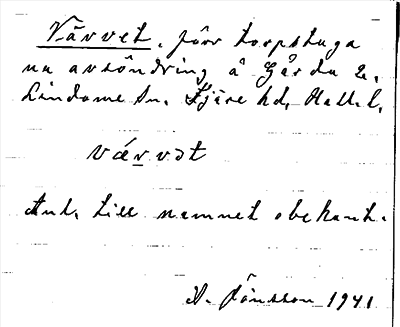 Värvet, förr torpstuga
nu avsöndring å Gårda 2,
Lindome sn. Fjäre hd, Hall. l.
værvət
Anl. till namnet obekant.
A. Jönsson 1941